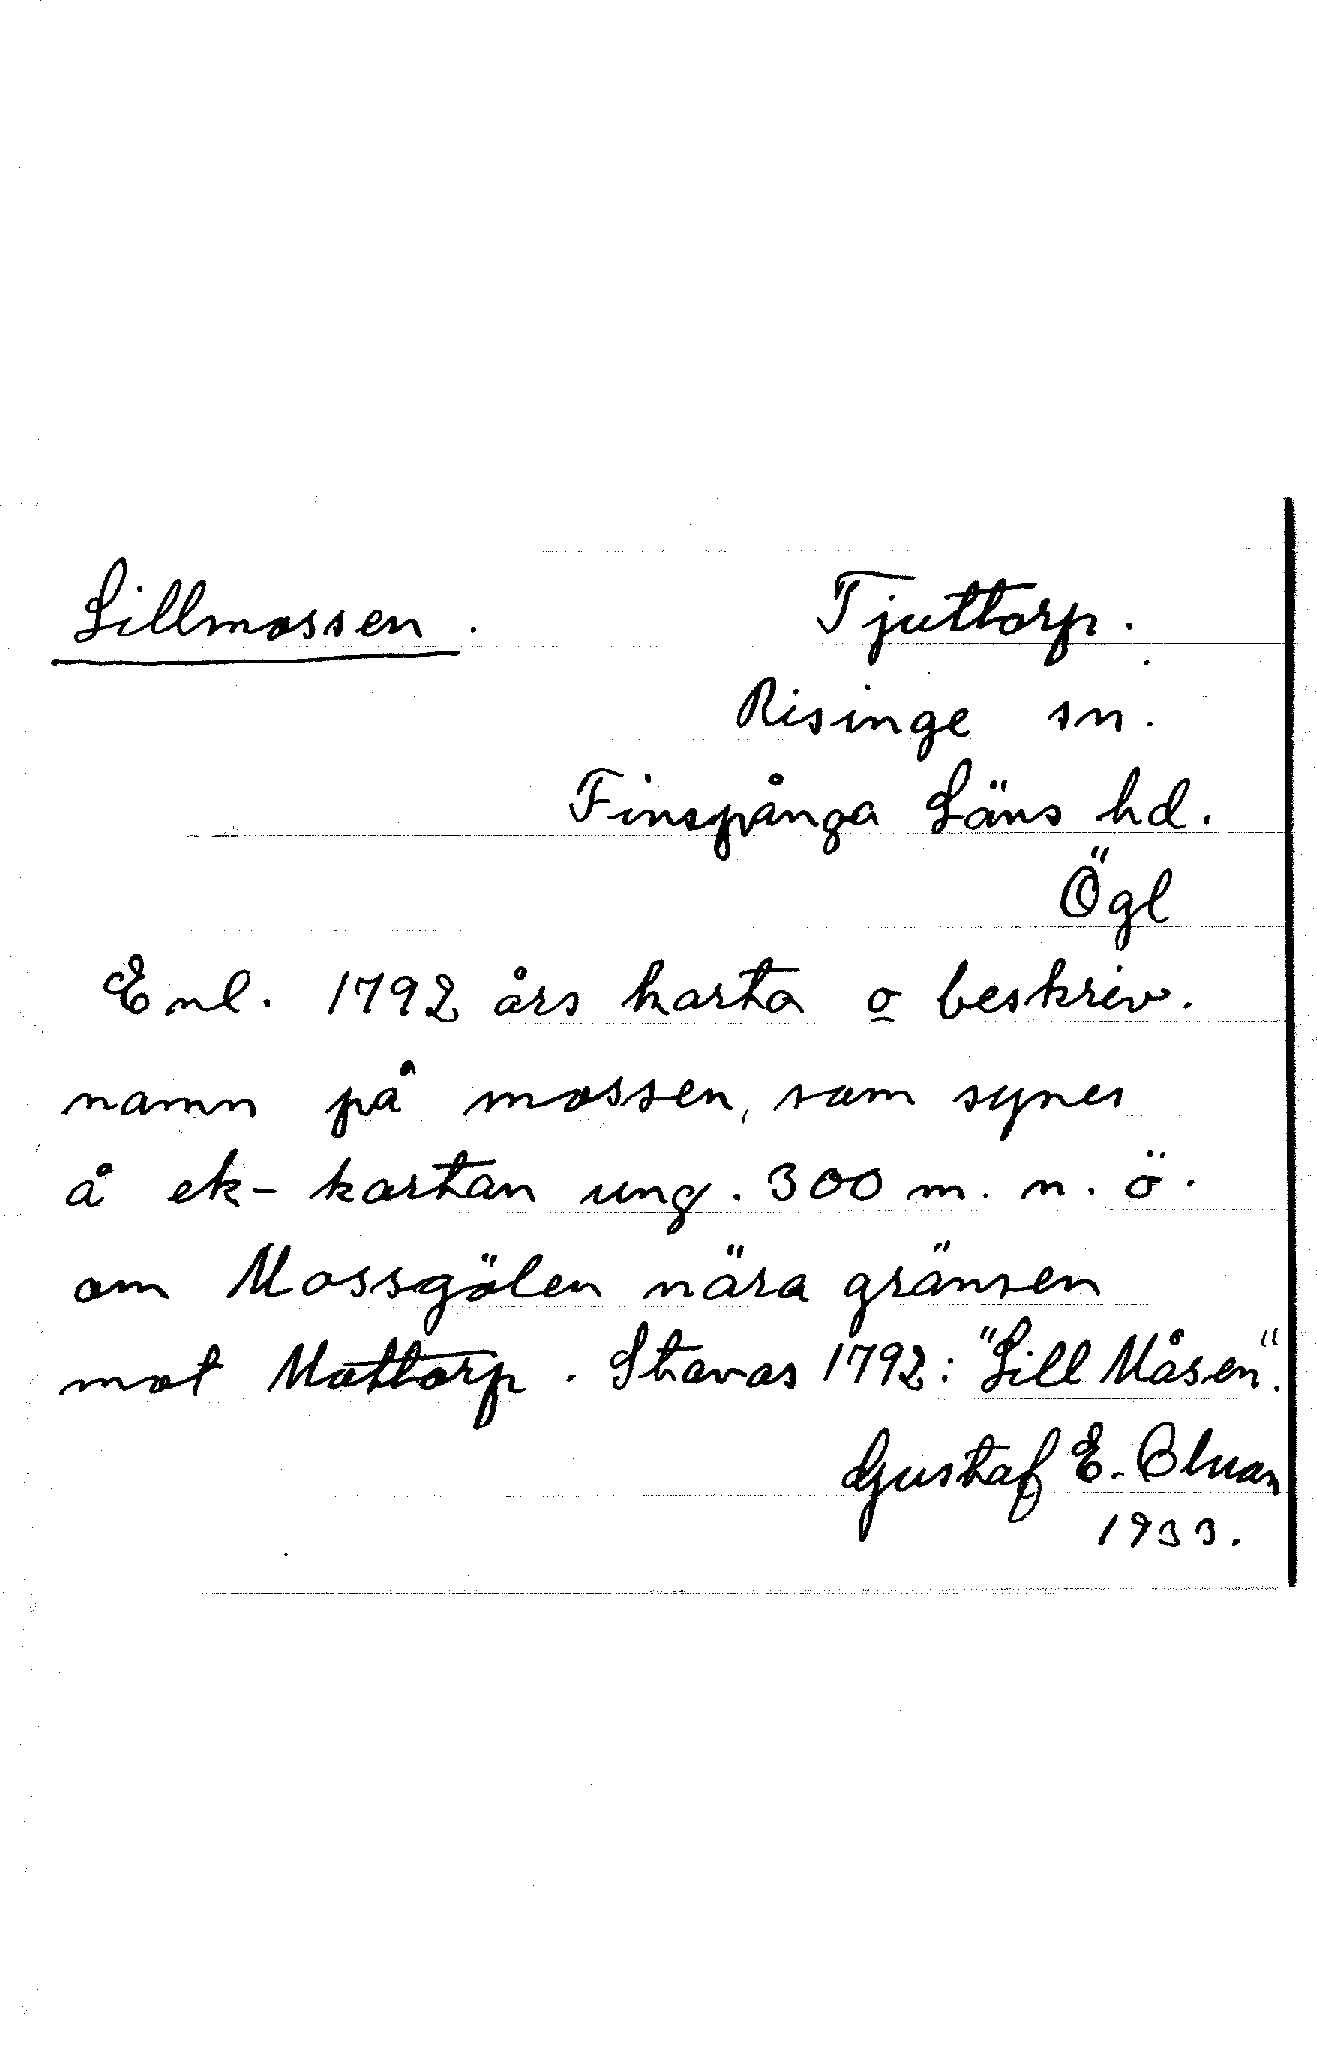 Lillmossen. Tjuttorp.
Risinge sn.
Finspånga Läns hd.
Ögl
Enl. 1792 års karta o beskriv.
namn på mossen, som synes
å ek-kartan ung. 300 m. n. ö.
om Mossgölen nära gränsen
mot Mottorp. Stavas 1792: "Lill Måsen".
Gustaf E.
1933.